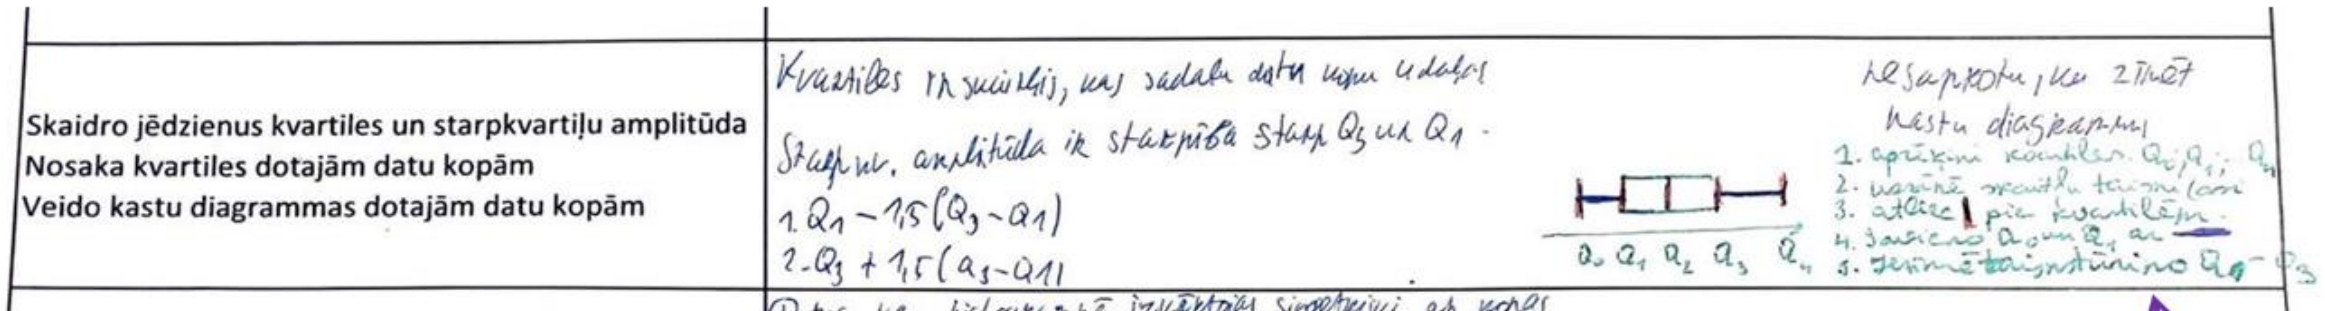 Skaidro jēdzienus kvartiles un starpkvartiļu amplitūda
Nosaka kvartiles dotajām datu kopām
Veido kastu diagrammas dotajām datu kopām
Kvartiles ir skaitlis, kas sadala datu kopu 4 daļas
Starpkv. amplitūda ir starpība starp Q3 un Q1.
1. Q1 - 1,5(Q3-Q1)
2. Q3 + 1,5(Q3-Q1)
Q0 Q1 Q2 Q3 Q4
nesaprotu, kā zīmēt
kastu diagrammu
1. aprēķini kvartiles. Q0, Q1; Q4
2. uzzīmē skaitļu taisni (asi
3. atliec | pie kvartilēm.
4. Savieno Q0 un Q1 ar
5. Iezīmē taisnstūri no Q1 - Q3